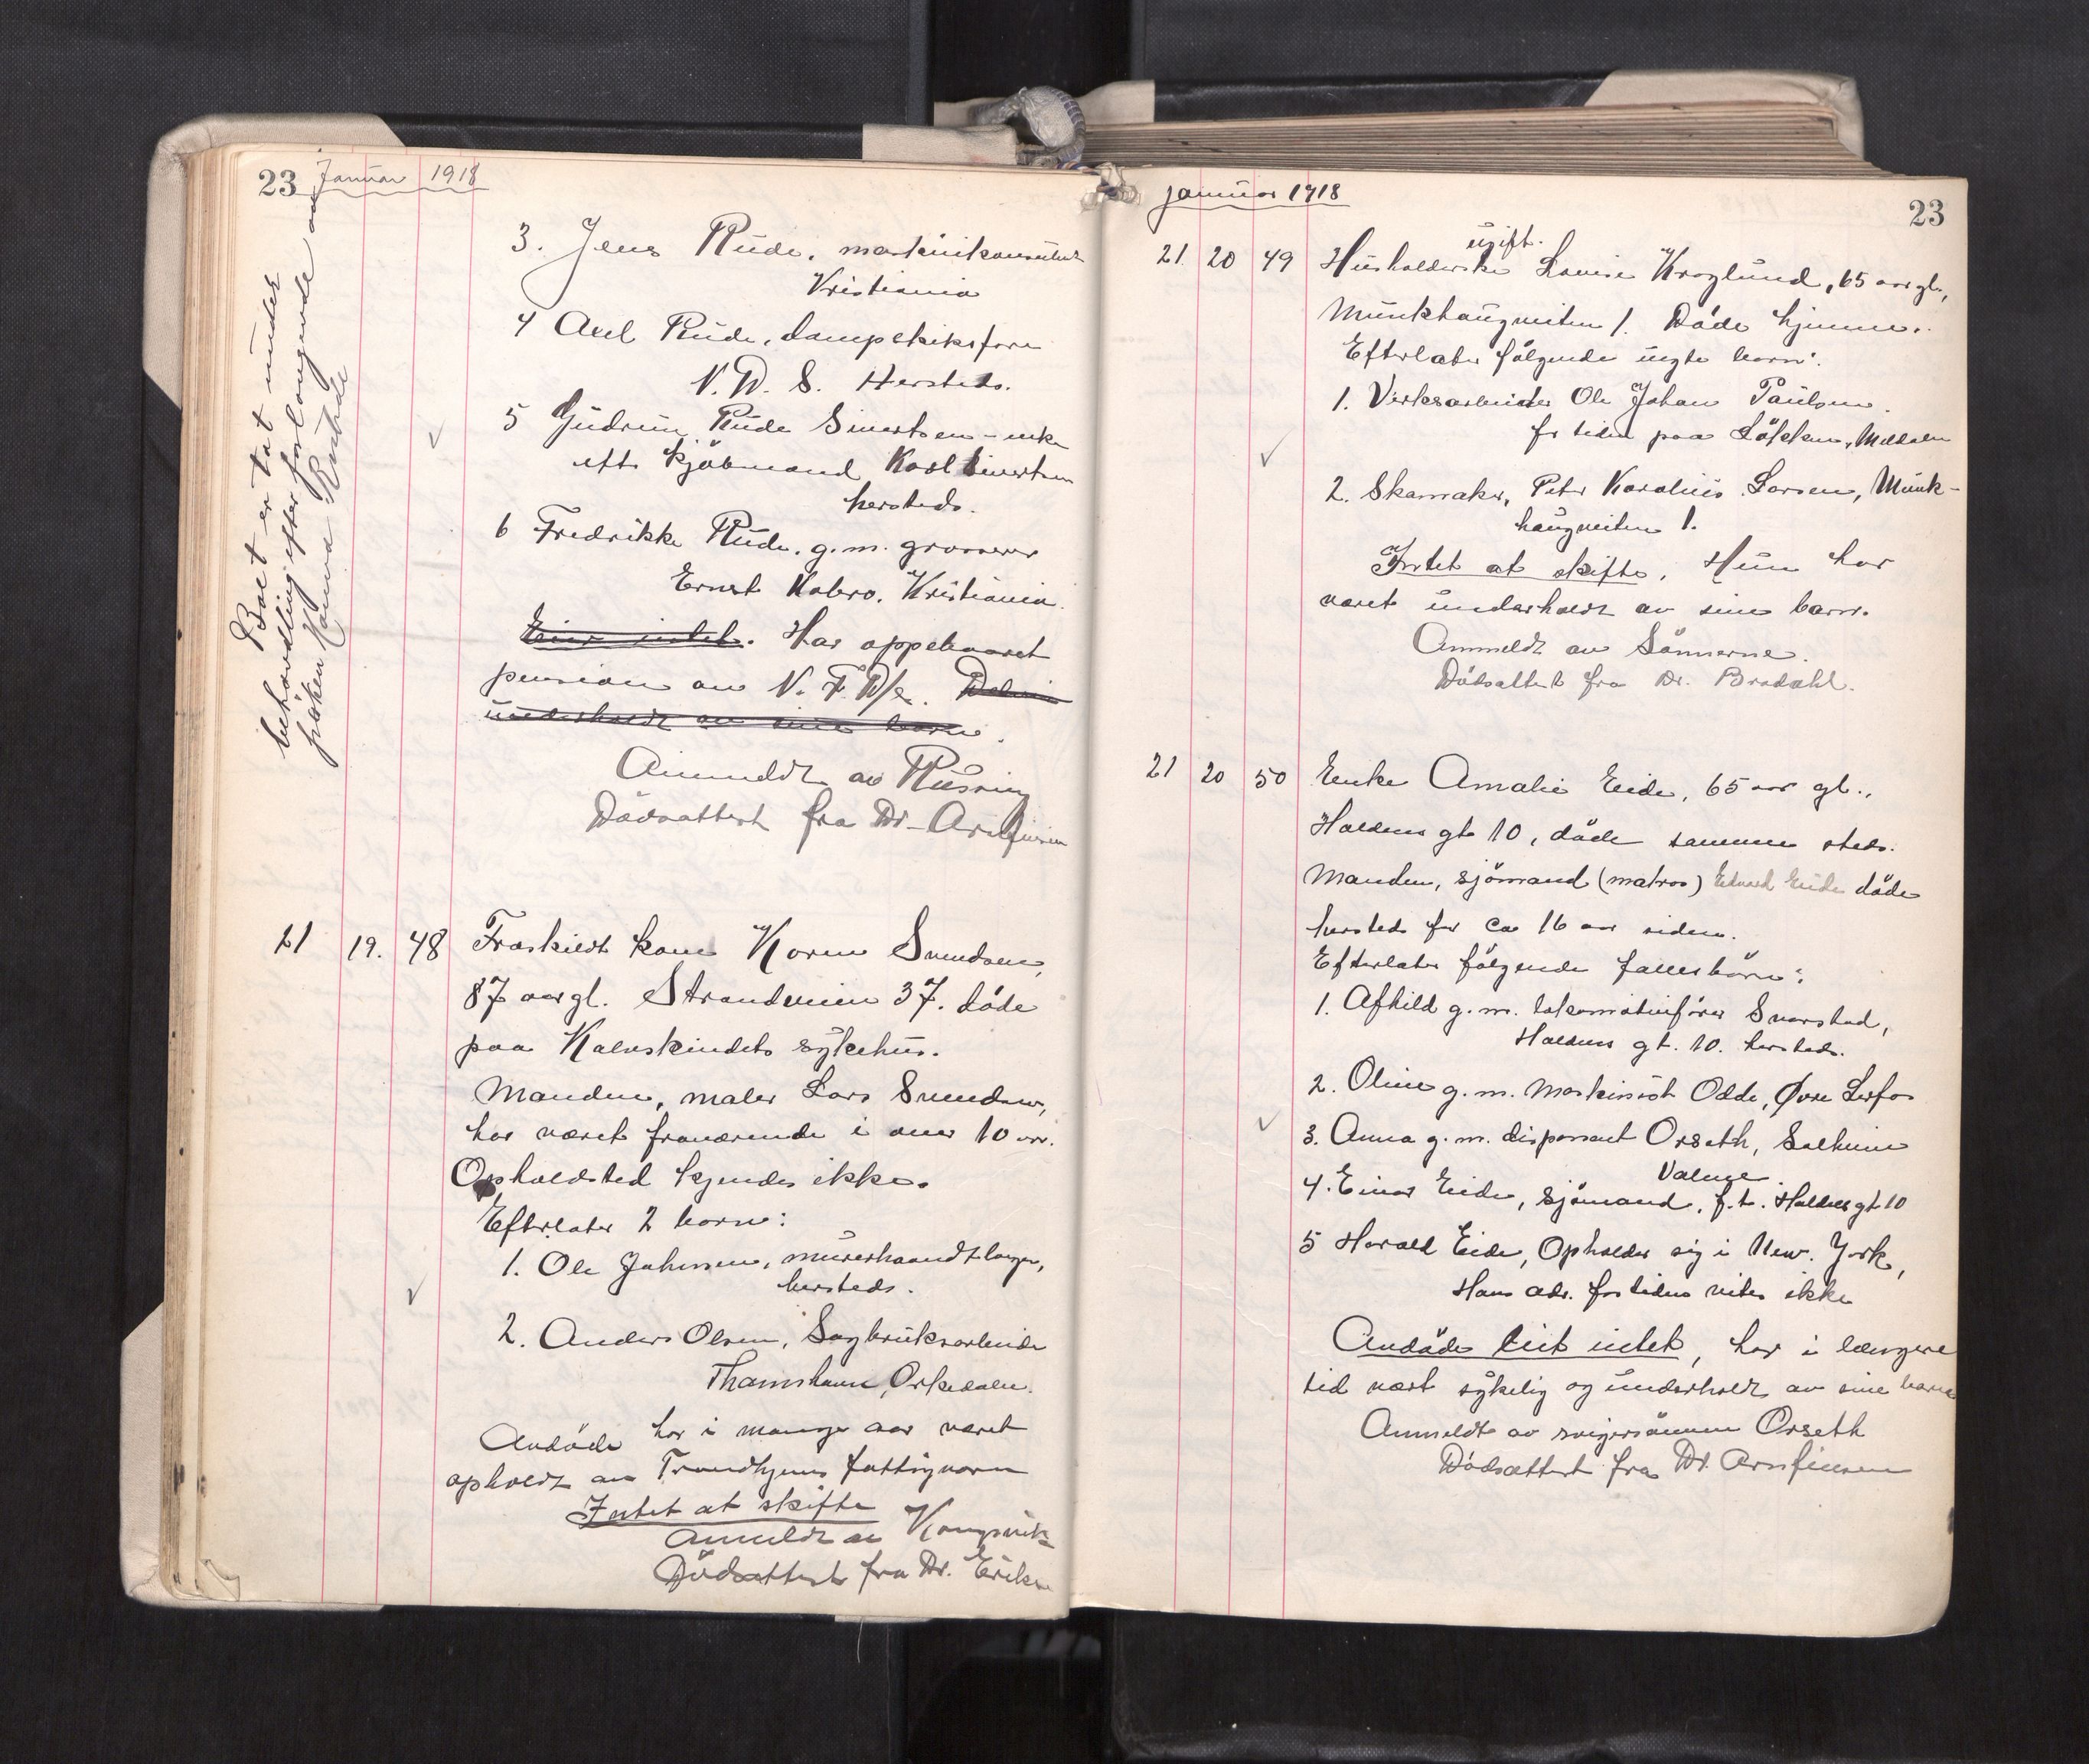 23 Januar 1918
Boet er tat under
behandling efter forlangende av
frøken Hanna Rude
3. Jens Rude, maskinkonsulent
Kristiania
4 Axel Rude, dampskibsfører
N. D. S. Hersteds.
5 Gudrun Rude Sivertsen - enke
eft. kjöbmand Karl Sivertsen
hersteds.
6 Fredrikke Rude, g.m. grosserer
Ernst Kobro, Kristiania.
Eier intet. Har oppebaaret
pension av N. F. D/s.
underholdt av sine barn.
Anmeldt av Rusning
Dödsattest fra Dr. Arnfinsen
21 19. 48 Fraskildt kone Karen Svendsen,
87 aar gl. Strandveien 37. döde
paa Kalvskindets sykehus.
Manden, maler Lars Svendsen,
har været fraværende i over 10 aar.
Opholdsted kjendes ikke.
Efterlater 2 barn:
1. Ole Johnsen, murerhaandtlanger,
hersteds.
2. Anders Olsen, Sagbruksarbeider
Thamshavn, Orkedalen.
Avdöde har i mange aar været
opholdt av Trondhjems fattigvæsen
Intet at skifte
Anmeldt av Kongsvik
Dödsattest fra Dr. Eriksen
januar 1918
23
ugift.
21. 20 49 Husholderske Lovise Kroglund, 65 aar gl.,
Munkhaugveiten 1. Döde hjemme.
Efterlater fölgende uegte barn:
1. Verksarbeider Ole Johan Paulsen.
for tiden paa Lökken, Meldalen
2. Skomaker, Peter Karolius Larsen, Munk-
haugveiten 1.
Intet at skifte. Hun har
været underholdt av sine barn.
Anmeldt av Sönnerne.
Dödsattest fra Dr. Bradahl.
21 20 50 Enke Amalie Eide, 65 aar gl.,
Haldens gt 10, döde samme sted.
Manden, sjömand (matros) Edvard Eide döde
hersteds for ca 16 aar siden.
Efterlater fölgende fællesbörn:
1. Afhild g. m. lokomotivförer Svorstad,
Haldens gt. 10. hersteds.
2. Oline g. m. Maskinist Odde, Øvre Lerfos
3. Anna g. m. disponent Orseth, Solheim
Valene.
4. Einar Eide, sjömand, f. t. Haldens gt 10
5 Harald Eide, Opholder sig i New York,
Hans adr. for tiden vites ikke
Avdöde eiet intet, har i længere
tid vært sykelig og underholdt av sine barn
Anmeldt av svigersönnen Orseth
Dödsattest fra Dr. Arnfinsen